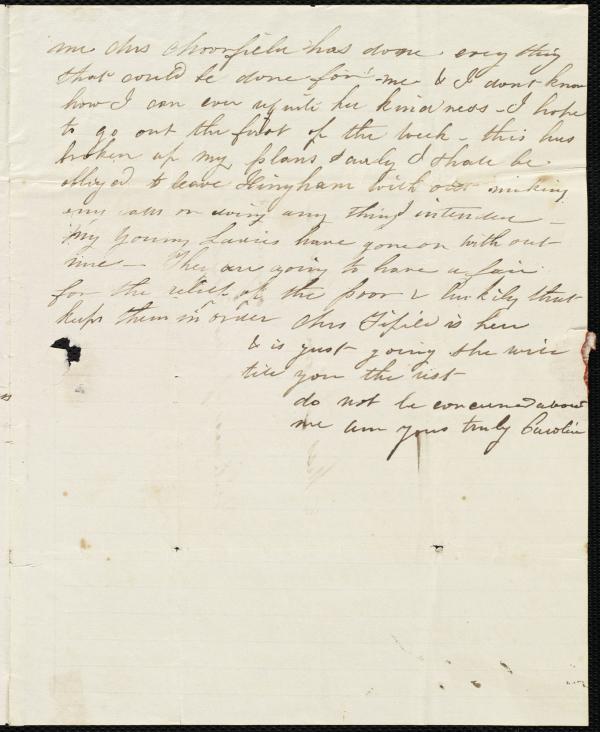 me Mrs Thoorfield has done every thing
that could be done for me & I dont know
how I can ever requite her kindness - I hope
to go out the first of the week - this has
broken up my plans sadly I shall be
obliged to leave Hingham with out making
any calls or doing any thing I intended -
My Young Ladies have gone on with out
me - They are going to have a fair
for the relief of the poor & luckily that
keeps them in order Mrs Fifield is here
& is just going she will
tell you the rest
do not be concerned about
me am yours truly Caroline